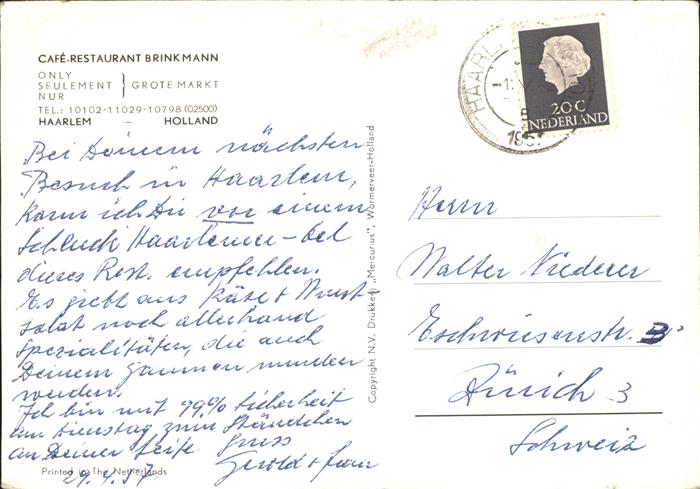 CAFÉ-RESTAURANT BRINKMANN
ONLY
SEULEMENT } GROTE MARKT
NUR
TEL.: 10102-11029-10798 (02500)
HAARLEM - HOLLAND
Bei Deinem nächsten
Besuch in Haarlem,
kann ich Dir vor einem
Schluck Haarlemer-
dieses Rest. empfehlen.
Es giebt aus Käse + Wurst-
salat noch allerhand
Spezialitäten, die auch
Deinem Gaumen munden
werden.
Ich bin mit 99% Sicherheit
am Dienstag zum Ständchen
an Deiner Seite Gruss
Gerold + Frau
29.4.57
Printed in The Netherlands
Copyright N.V. Drukkerij „Mercurius", Wormerveer-Holland
HAARL
1957
20 C
NEDERLAND
Herrn
Walter Niederer
Eschwiesenstr.
Zürich 3
Schweiz